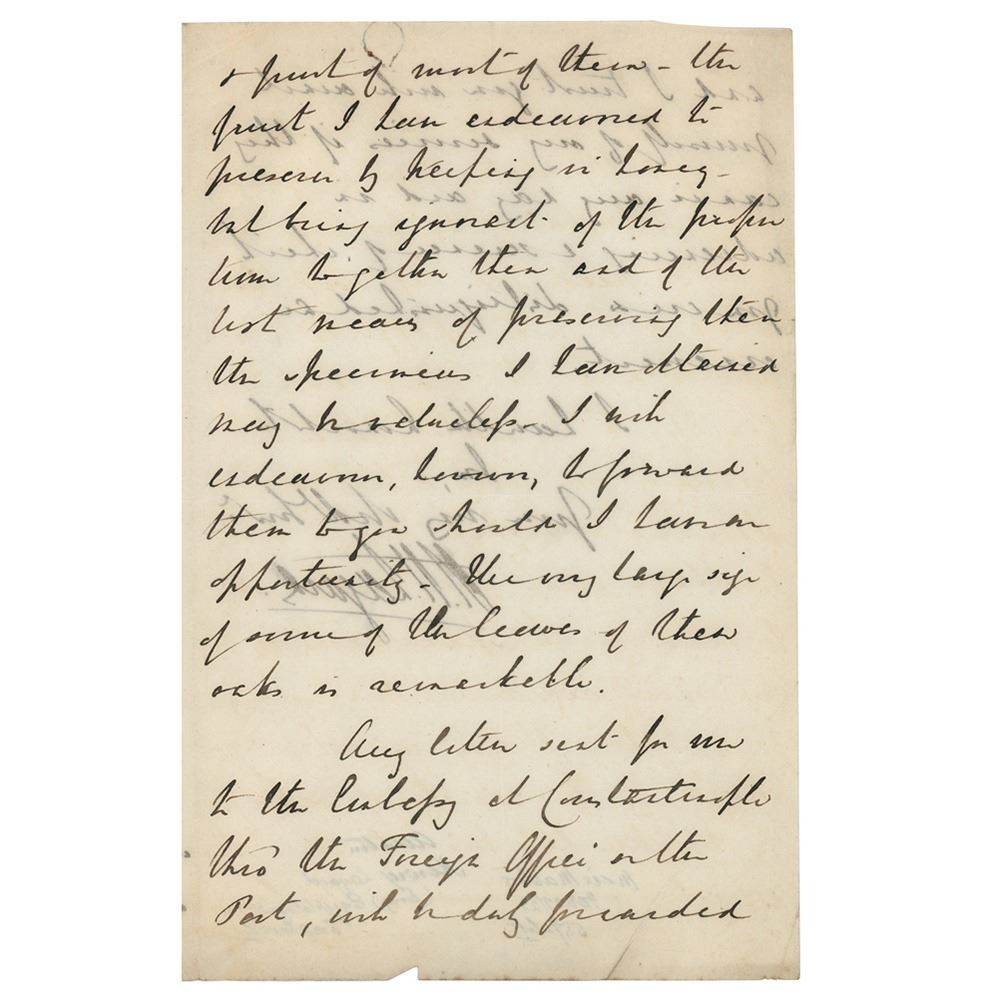 & fruit of most of them – the
fruit I have endeavoured to
preserve by keeping in honey –
but being ignorant of the proper
time to gather them and of the
best means of preserving them
the specimens I have obtained
may be valueless – I will
endeavour, however, to forward
them to you should I have an
opportunity – The very large size
of some of the leaves of these
oaks is remarkable.
Any letter sent for me
to the Embassy at Constantinople
thro the Foreign Office or the
Post, will be duly forwarded